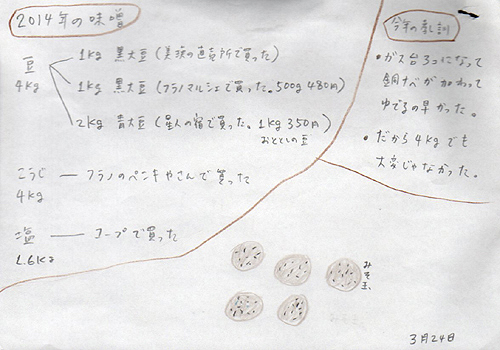 2014年の味噌
豆
4kg
1kg 黒大豆 (美瑛の直売所で買った)
1kg 黒大豆 (フラノマルシェで買った。500g 480円)
2kg 青大豆 (星人の宿で買った。1kg 350円)
おととしの豆
こうじ
4kg
フラノのペンキやさんで買った
塩
1.6kg
コープで買った
今年の教訓
・ガス台3つになって
銅ナベが加わって
ゆでるの早かった。
・だから4kgでも
大変じゃなかった。
みそ玉
3月24日